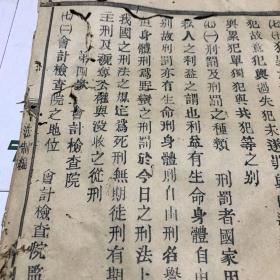 犯故意犯與過失犯共遂罪與
與累犯單獨犯與共犯等之別
㈥㈠刑罰及刑罰之種類 刑罰者國家用
私人之利益之謂也利益有生命身體自由
別故刑罰亦有生命刑身體刑自由刑名譽
但身體刑爲野蠻之刑罰於今日之刑法上
我國之刑法之規定爲死刑無期徒刑有期
主刑及褫奪公權與沒收之從刑
第四款 會計檢查院
會計檢查院之地位 會計檢查院監
法制編